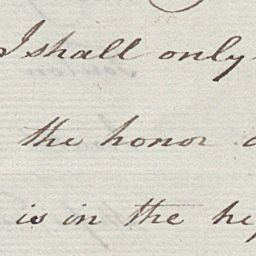 I shall only
the honor
is in the